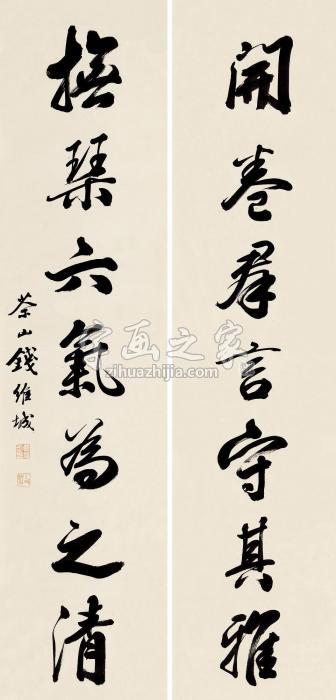 開卷群言守其雅
撫琴六氣為之清
茶山錢維城
字画之家
zihuazhijia.com